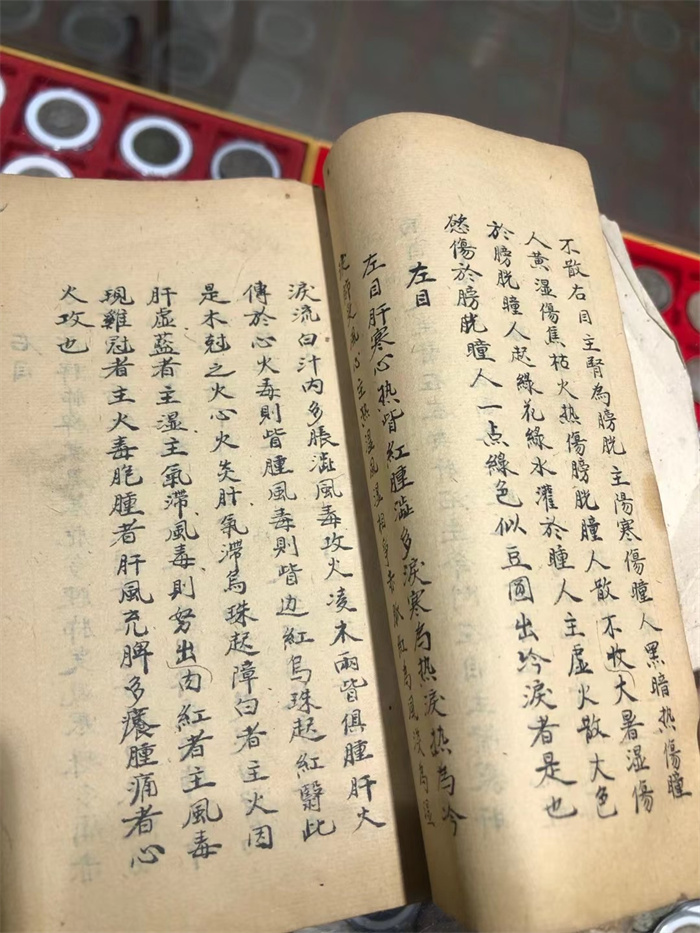 不散右目主腎為膀胱主陽寒傷瞳人黑暗热傷瞳
人黄湿傷焦枯火热傷膀胱瞳人散不收大暑湿傷
於膀胱瞳人起綠花綠水灌於瞳人主虚火散大色
慾傷於膀胱瞳人一点綠色似豆圓出冷淚者是也
左目
左目肝寒心热眥紅腫澁多淚寒為热淚热為冷
風心主热湿風
淚流白汁内多脹澁風毒攻火凌木兩眥俱腫肝火
傳於心火毒則眥腫風毒則眥边紅烏珠起紅翳此
是木尅之火心火炎肝氣滞烏珠起障白者主火因
肝虚藍者主湿主氣滞風毒則努出肉紅者主風毒
現雞冠者主火毒胞腫者肝風充脾多癢腫痛者心
火攻也